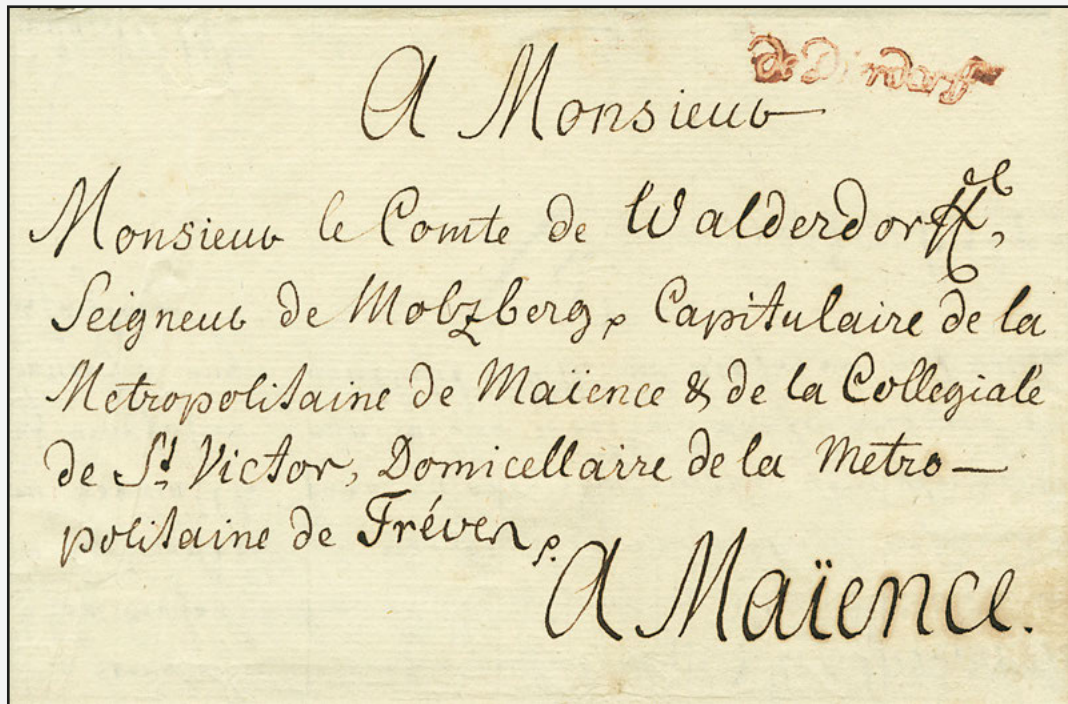 de Dierdorf
A Monsieur
Monsieur le Comte de Walderdorff,
Seigneur de Molzberg, Capitulaire de la
Metropolitaine de Maïence & de la Collegiale
de St. Victor, Domicellaire de la Metro-
politaine de Tréves,
A Maïence.